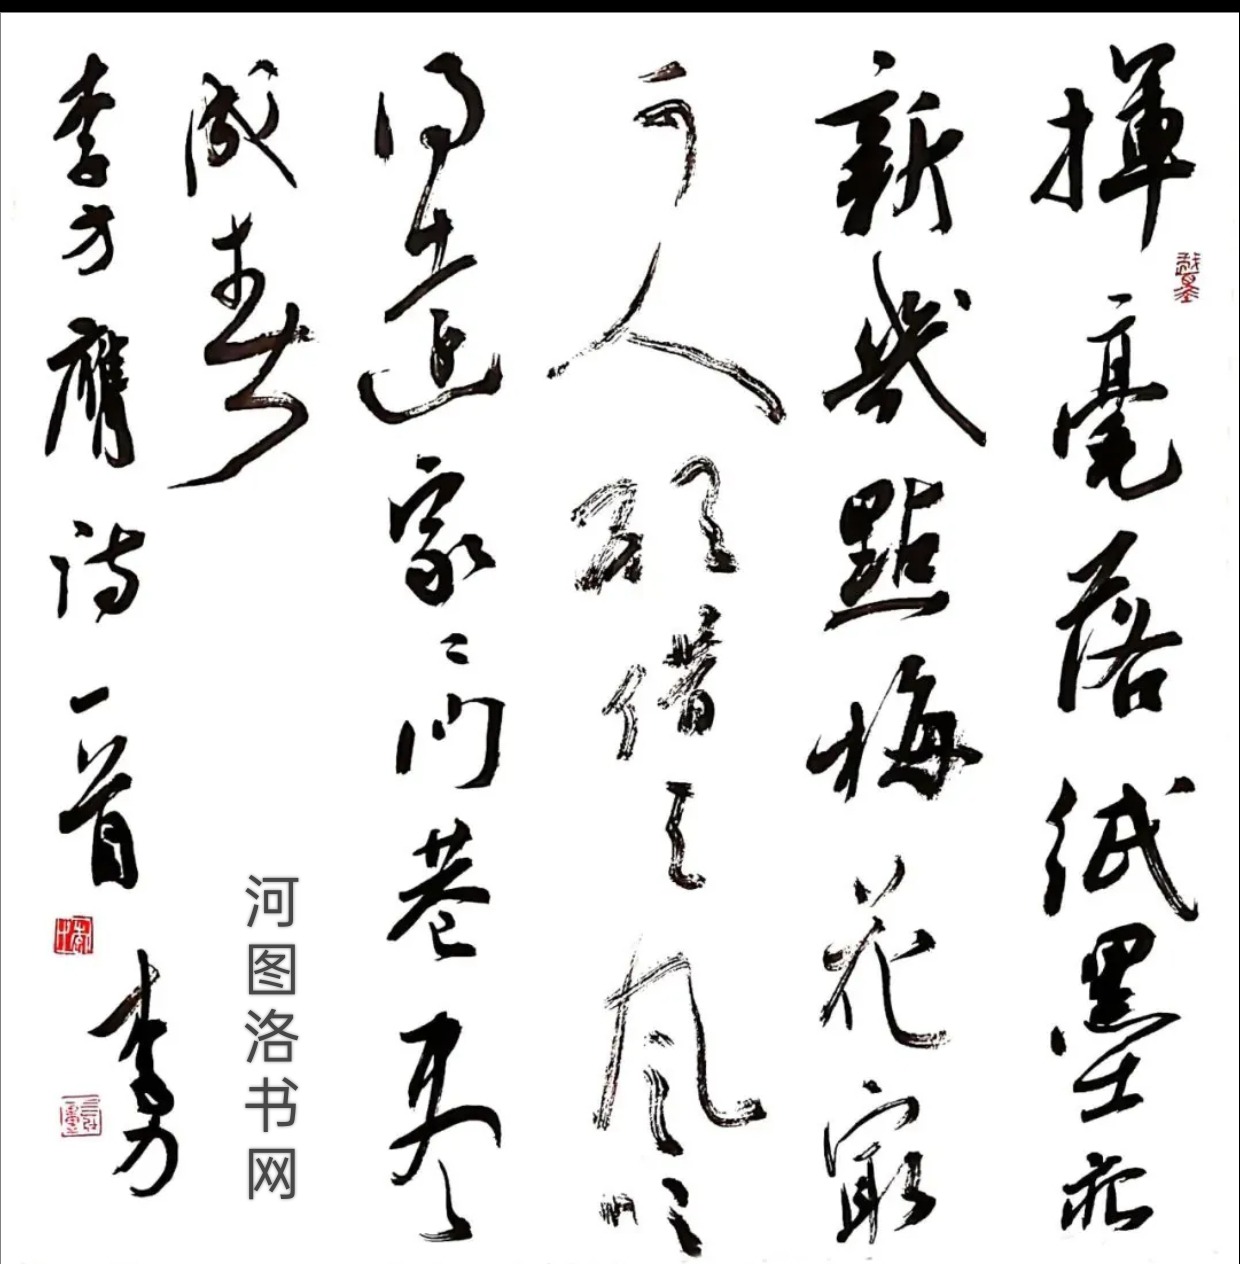 揮毫落紙墨亦
新幾點梅花最
可人願借天風吹
得遠家々門巷盡
成春
李方膺詩一首
河图洛书网